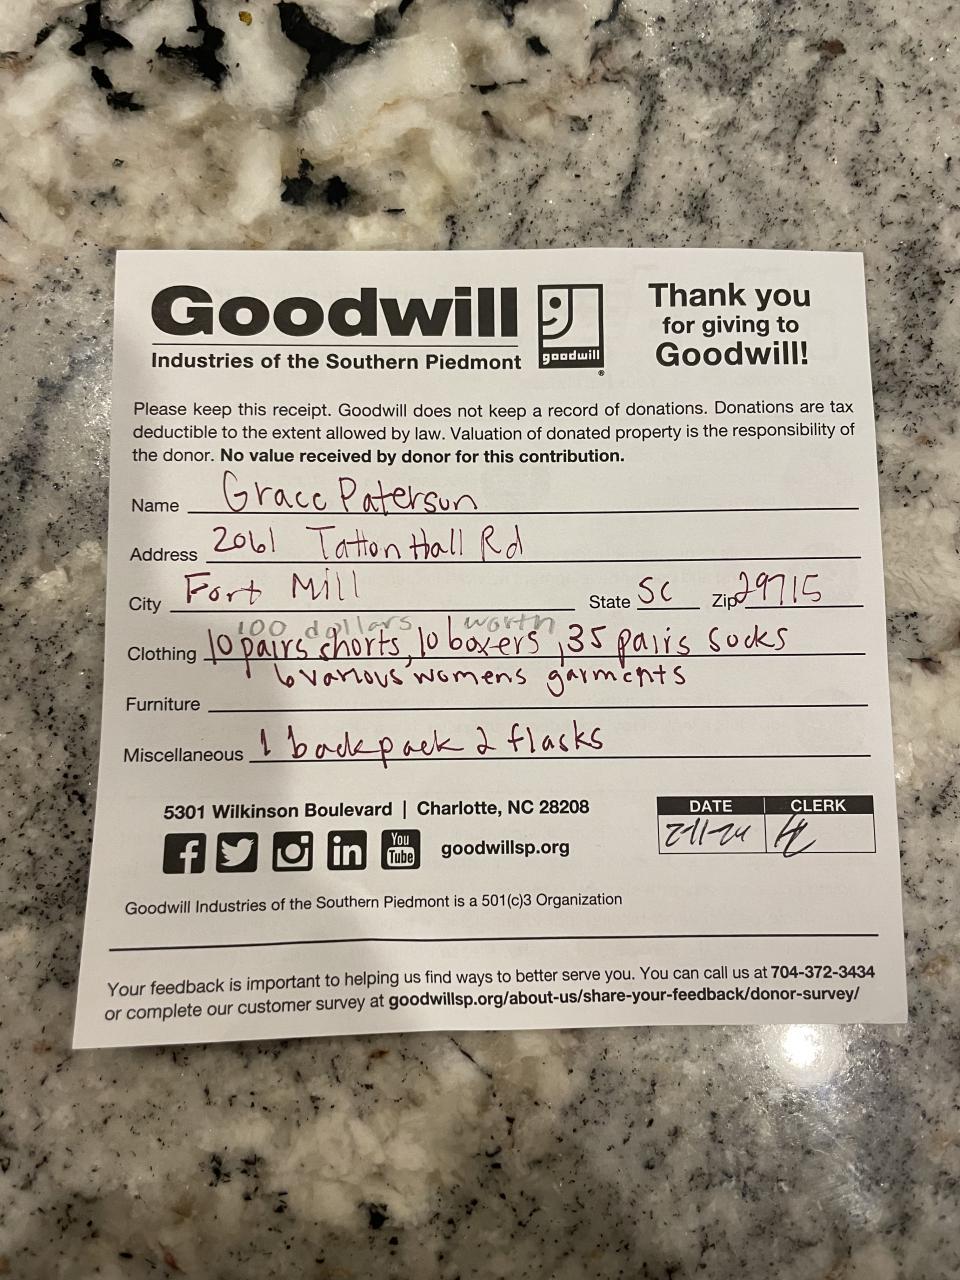 Goodwill
Industries of the Southern Piedmont
goodwill
®
Thank you
for giving to
Goodwill!
Please keep this receipt. Goodwill does not keep a record of donations. Donations are tax
deductible to the extent allowed by law. Valuation of donated property is the responsibility of
the donor. No value received by donor for this contribution.
Name Grace Paterson
Address 2061 Tatton Hall Rd
City Fort Mill State SC Zip 29715
100 dollars worth
Clothing 10 pairs shorts, 10 boxers, 35 pairs socks
6 various womens garments
Furniture
Miscellaneous 1 backpack 2 flasks
5301 Wilkinson Boulevard | Charlotte, NC 28208
DATE CLERK
You
Tube
in
goodwillsp.org
Goodwill Industries of the Southern Piedmont is a 501(c)3 Organization
Your feedback is important to helping us find ways to better serve you. You can call us at 704-372-3434
or complete our customer survey at goodwillsp.org/about-us/share-your-feedback/donor-survey/